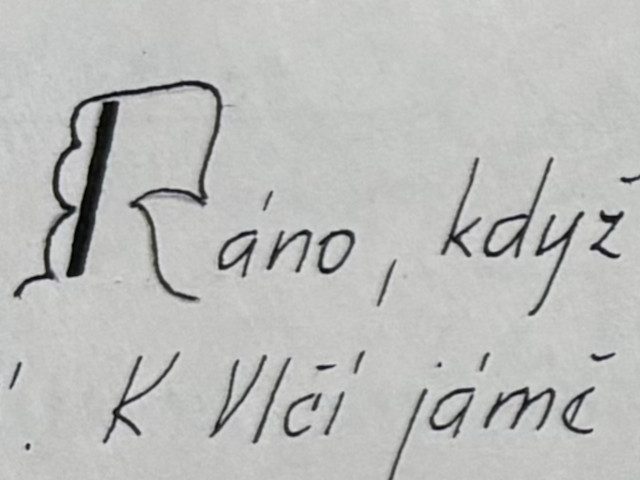 Ráno, když
. K Vlčí jámě